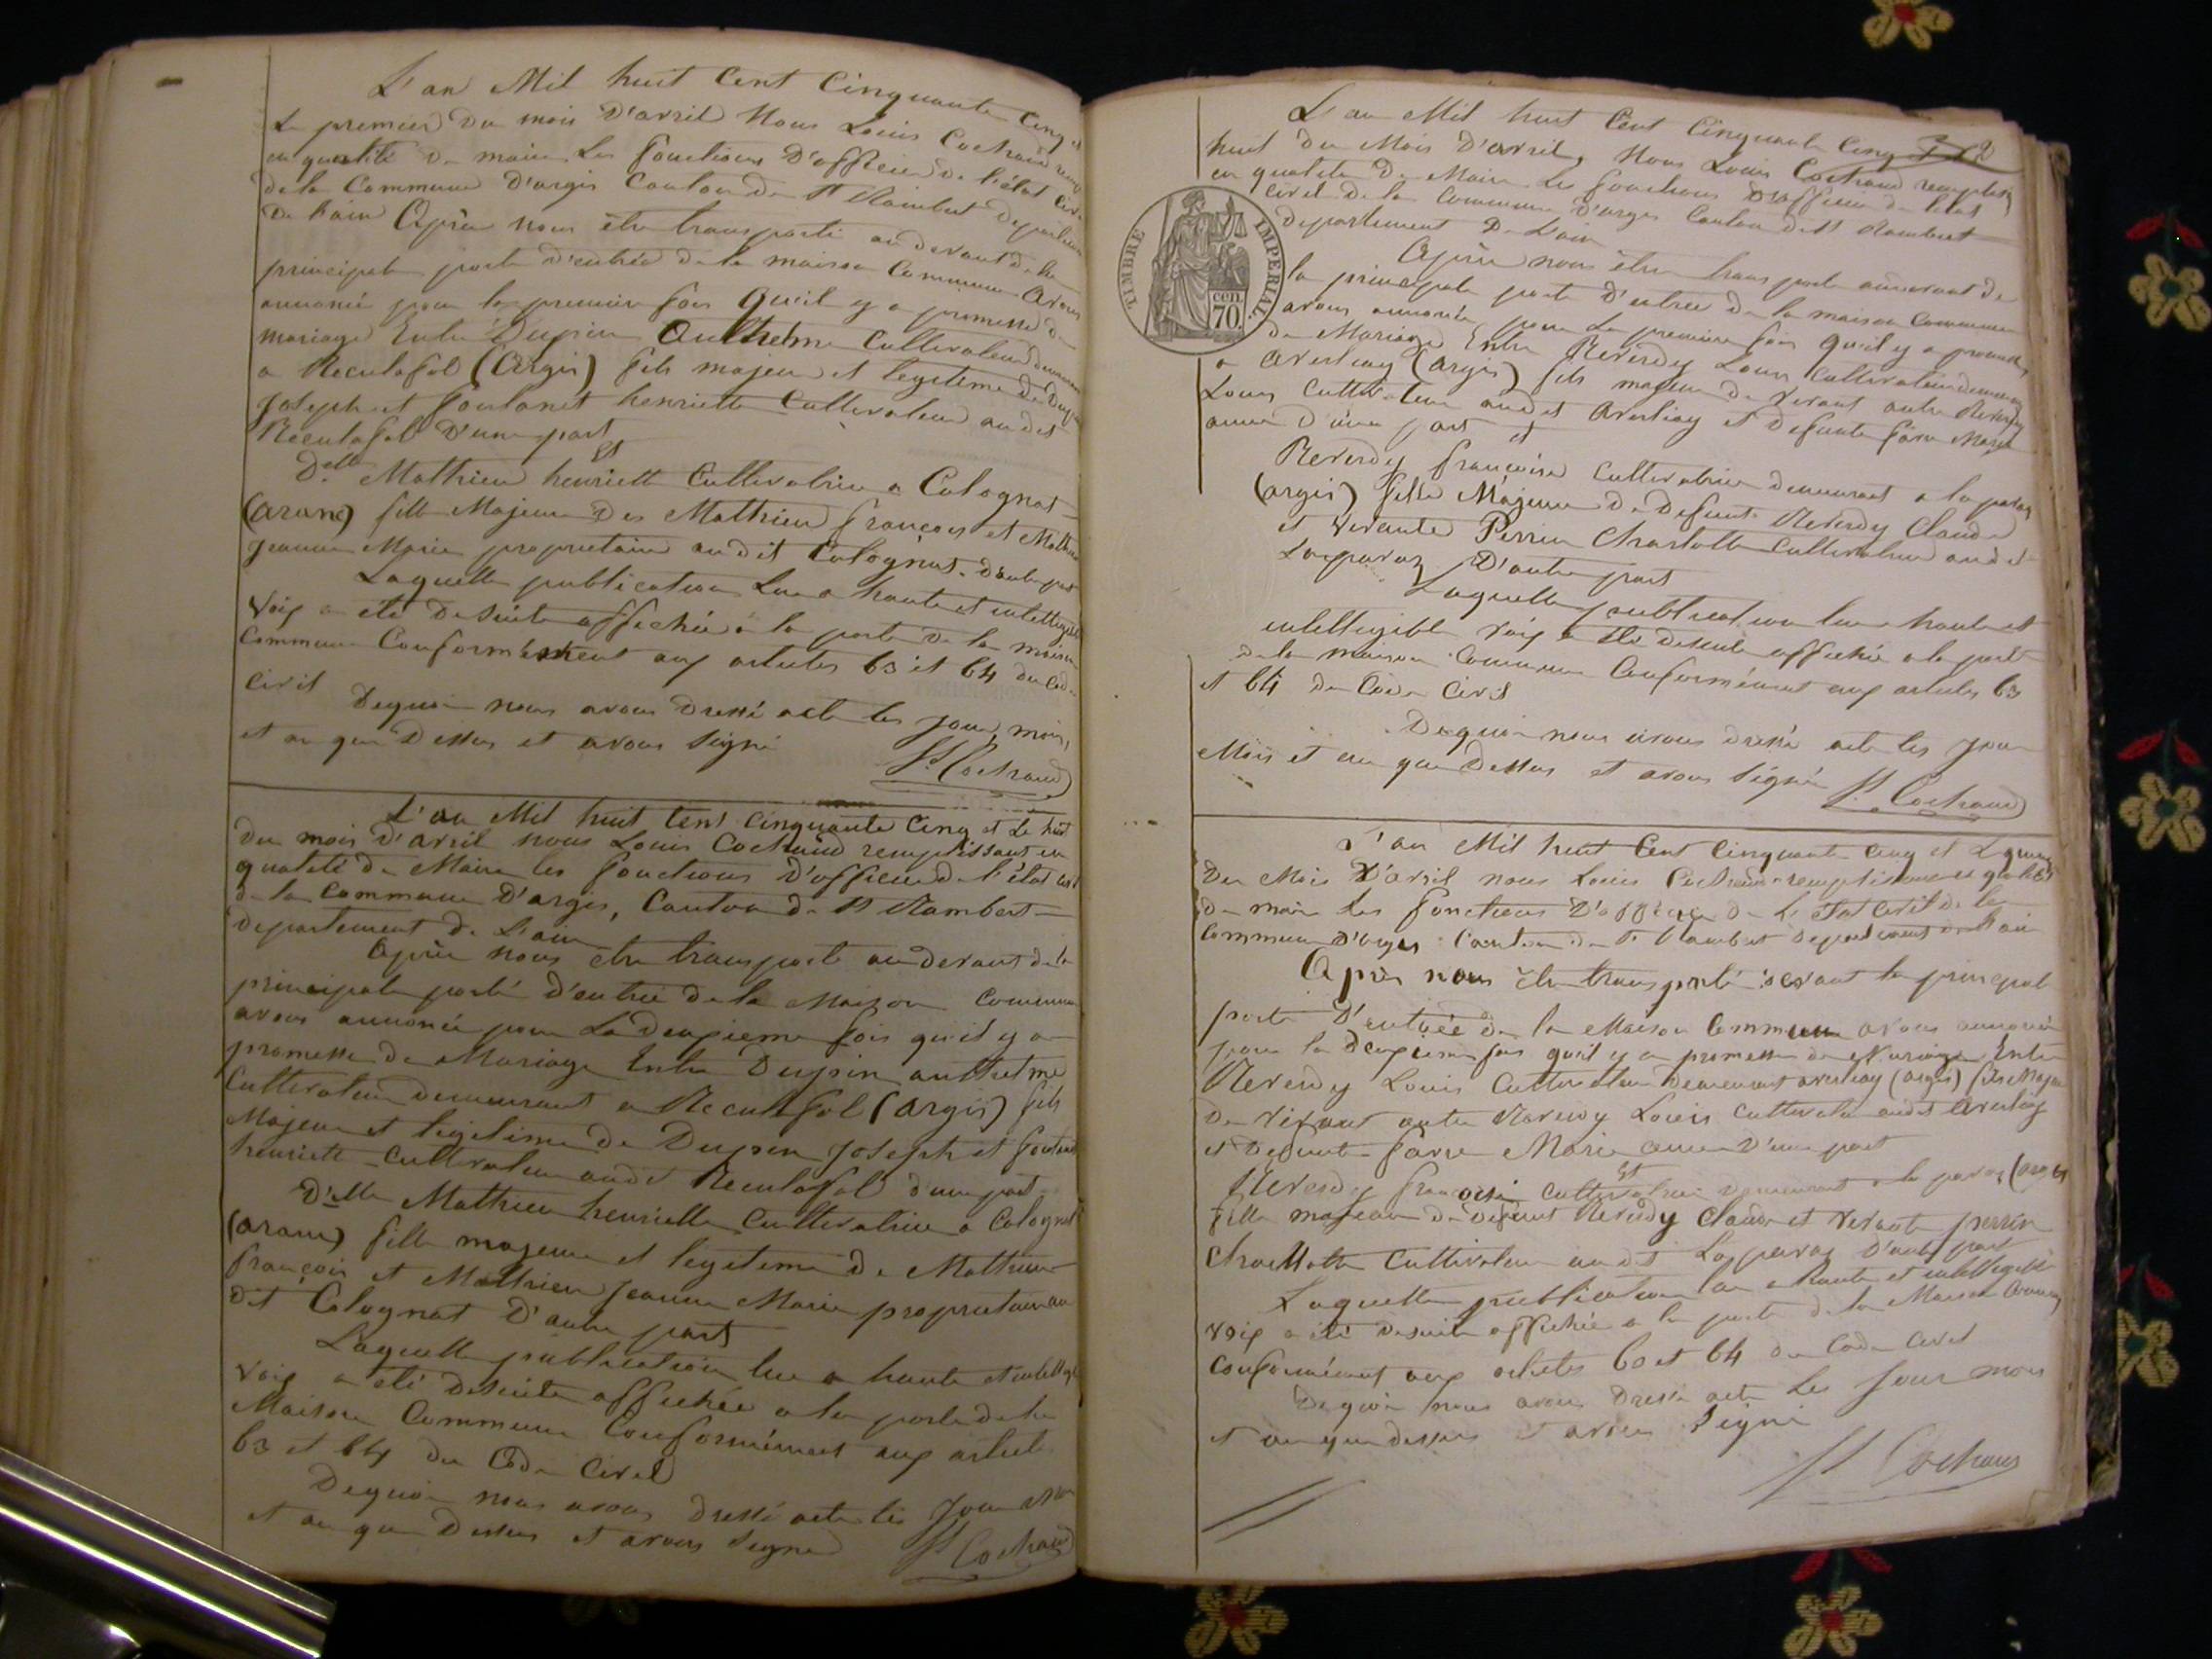 L'an Mil huit Cent Cinquante Cinq et
Le premier du mois D'avril Nous Louis Cochaud
en qualité de maire Les fonctions D'officier de l'état Civil
de la Commune D'argis Canton de St Rambert departement
De L'ain Après nous être transporté au devant de la
principale porte d'entrée de la maison Commune Avons
annoncé pour la premier fois Qu'il y a promesse de
mariage Entre Dupin Anthelme Cultivateur demeurant
a Reculafol (Argis) fils majeur et legitime de Dupin
Joseph et henriette Cultivateur audit
Reculafol D'une part
Et
Delle Mathieu henriette Cultivatrice a Colognat
(aranc) fille Majeure Des Mathieu françois et Mathieu
Jeanne Marie proprietaire audit Colognat. D'autre part
Laquelle publication Lue a haute et intelligible
Voix a été De suite affichée a la porte De la maison
Commune Conformément aux articles 63 et 64 du Code
Civil
Dequoi nous avons Dressé acte les jour, mois,
et an que Dessus et avons Signé
Ls Cochaud
L'an Mil huit Cent cinquante Cinq et Le huit
Du mois D'avril nous Louis Cochaud remplissant en
qualité De Maire les fonctions D'officier De l'état civil
de la Commune D'argis, Canton de St Rambert
departement De L'ain
Après nous être transporté au devant de la
principale porte D'entrée De la Maison Commune
avons annoncé pour La Deuxieme fois qu'il y a
promesse De Mariage Entre Dupin anthelme
Cultivateur demeurant a Reculafol (Argis) fils
Majeur et legitime De Dupin Joseph et
henriette Cultivateur audit Reculafol D'une part
Delle Mathieu henriette Cultivatrice a Colognat
(aranc) fille majeure et legitime De Mathieu
françois et Mathieu Jeanne Marie proprietaire au
dit Colognat D'autre part
Laquelle publication lue a haute et intelligible
Voix a été Desuite affichée a la porte de la
Maison Commune Conformément aux articles
63 et 64 du Code Civil
Dequoi nous avons Dressé acte les Jour Mois
et an que Dessus et avons Signé
Ls Cochaud
L'an Mil huit Cent Cinquante Cinq
huit du Mois D'avril, Nous Louis Cochaud remplissant
en qualité De Maire Les fonctions D'officier de l'état
Civil de la Commune D'argis Canton de St Rambert
departement De L'ain
Après nous être transporté audevant de
la principale porte D'entrée De la maison Commune
avons annoncé pour La premiere fois Qu'il y a promesse
de Mariage Entre Reverdy Louis Cultivateur demeurant
a Averliay (argis) fils majeur de vivant autre Reverdy
Louis Cultivateur audit Averliay et Defunte Marie
D'une part
et
Reverdy françoise Cultivatrice demeurant a la paroz
(argis) fille Majeure De Defunt Reverdy Claude
et vivante Perrin Charlotte Cultivatrice audit
Laparoz D'autre part
Laquelle publication lue a haute et
intelligible voix a été desuite affichée a la porte
de la maison Commune Conformément aux articles 63
et 64 du Code Civil
Dequoi nous avons dressé acte les Jour
Mois et an que Dessus et avons Signé
Ls Cochaud
TIMBRE IMPERIAL
cen.
70.
L'an Mil huit Cent Cinquante Cinq et Le quinze
Du Mois D'avril nous Louis Cochaud remplissant en qualité
de maire Les fonctions D'officier De L'état Civil de la
Commune D'argis Canton de St Rambert Departement de L'ain
Après nous être transporté devant la principale
porte D'entrée de la Maison Commune avons annoncé
pour la Deuxieme fois qu'il y a promesse de Mariage Entre
Reverdy Louis Cultivateur Demeurant averliay (argis) fils Majeur
De vivant autre Reverdy Louis Cultivateur audit Averliay
et Defunte Marie D'une part
Et
Reverdy françoise Cultivatrice Demeurant a la paroz (argis)
fille majeure De Defunt Reverdy Claude et vivante perrin
Charlotte Cultivateur audit La paroz D'autre part
Laquelle publication lue a haute et intelligible
voix a été Desuite affichée a la porte de la Maison Commune
Conformément aux articles 63 et 64 du Code Civil
Dequoi nous avons Dressé acte Les Jour mois
et an que dessus et avons Signé
Ls Cochaud